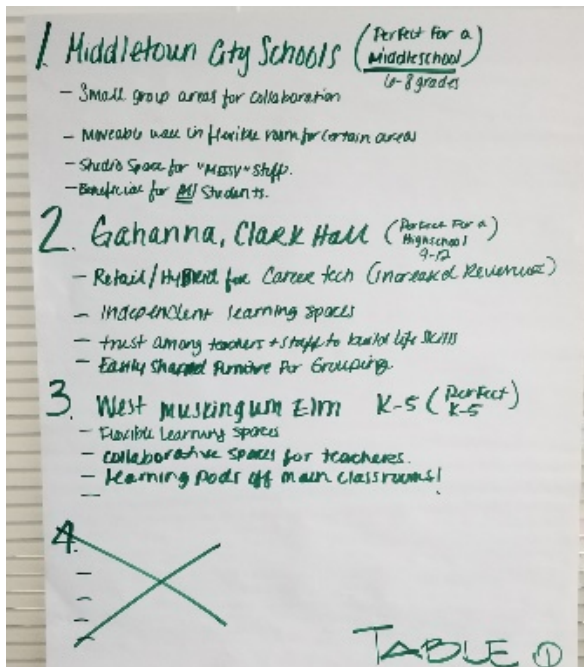 1. Middletown City Schools (Perfect For a
Middleschool)
6-8 grades
- Small group areas for collaboration
- Moveable wall in flexible room for certain areas
- Studio Space for "MESSY" Stuff.
- Beneficial for All Students.
2. Gahanna, Clark Hall (Perfect For a
Highschool)
9-12
- Retail/Hybrid for Career tech (increased Revenue)
- Independent learning spaces
- trust among teachers + staff to build life skills
- Easily Shaped Furniture For Grouping
3. West Muskingum Elm K-5 (Perfect)
K-5
- Flexible Learning Spaces
- collaborative spaces for teachers.
- learning pods off main classrooms!
-
4.
-
-
-
-
TABLE 1